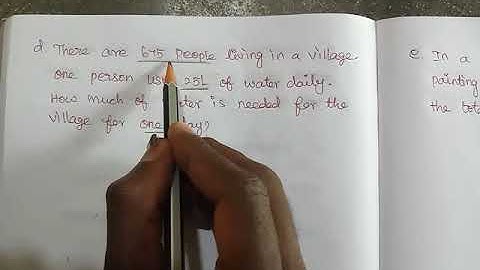 d. There are 645 people living in a village.
one person 25L of water daily.
How much of is needed for the
village for one day?
e. In a
painting
the